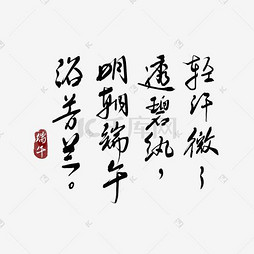 輕汗微微
透碧紈，
明朝端午
浴芳蘭。
端午